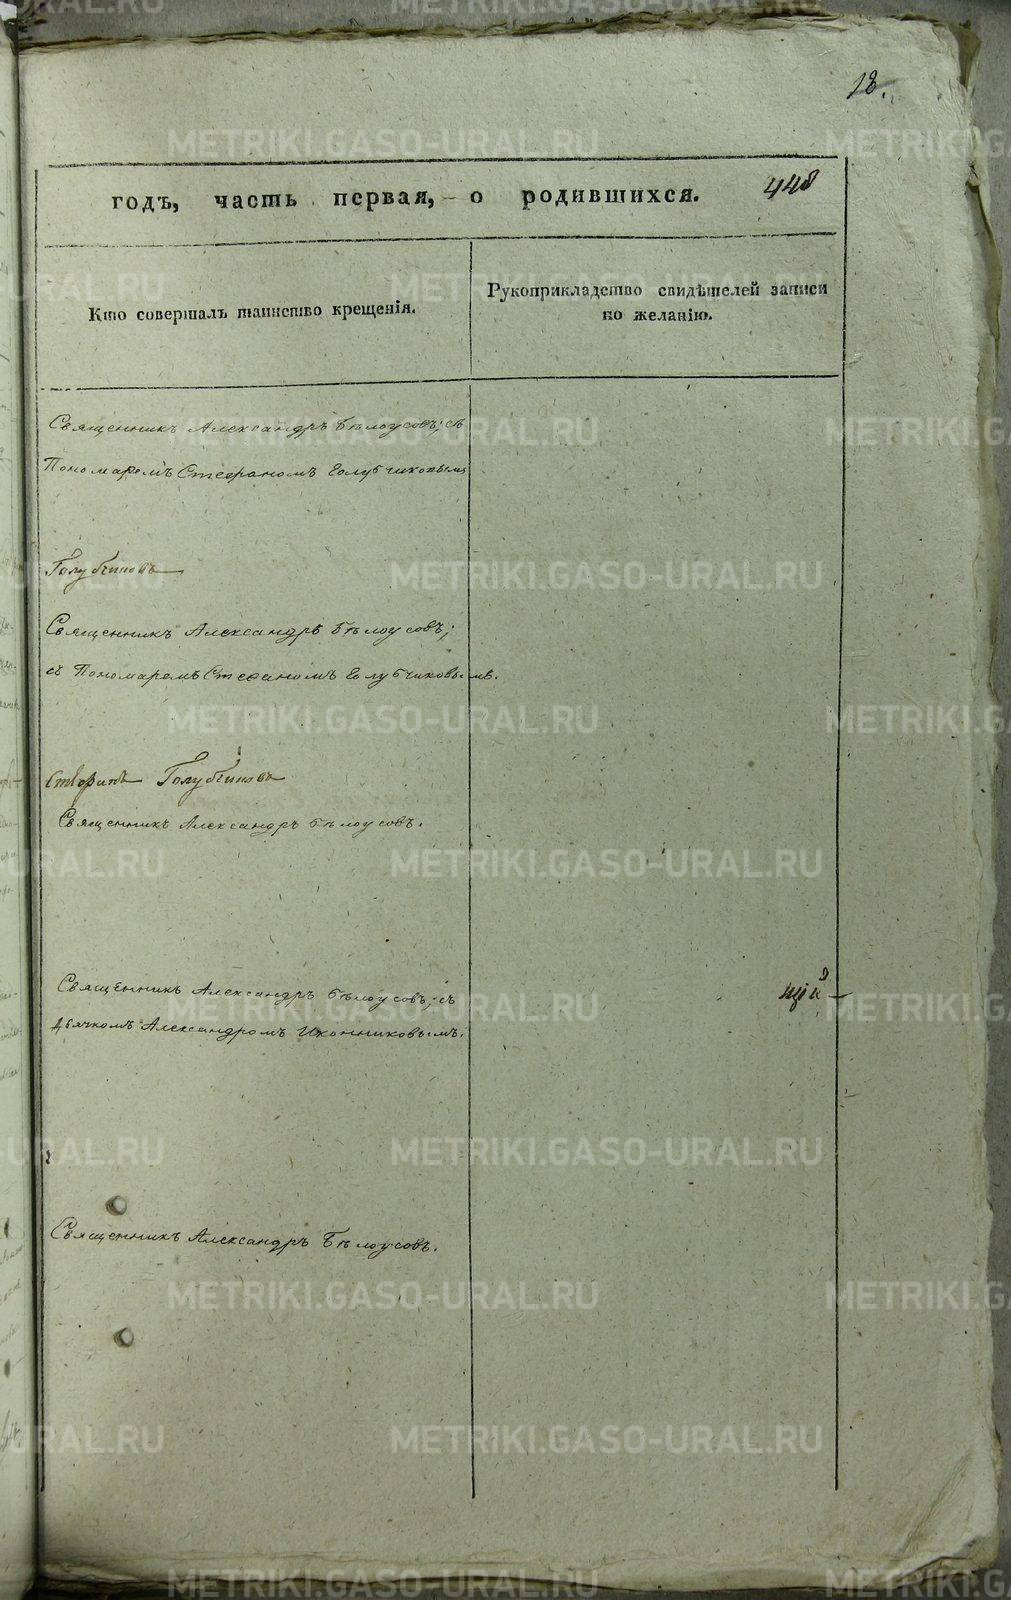 18.
годъ, часть первая, о родившихся. 448
Кто совершалъ таинство крещенія.
Рукоприкладство свидѣтелей записи
по желанію.
Священникъ Александръ Бѣлоусовъ; съ
Пономаремъ Стефаномъ Голубчиковымъ
Священникъ Александръ Бѣлоусовъ;
съ Пономаремъ Стефаномъ Голубчиковымъ.
Священникъ Александръ Бѣлоусовъ.
Священникъ Александръ Бѣлоусовъ; съ
Дьячкомъ Александромъ Иконниковымъ.
щій
Священникъ Александръ Бѣлоусовъ.
METRIKI.GASO-URAL.RU